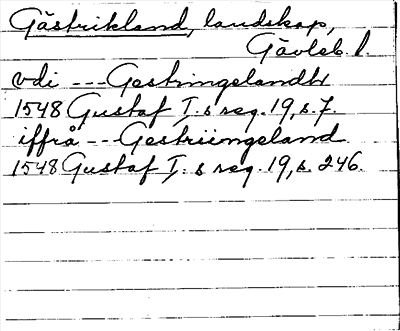 Gästrikland, landskap,
Gävleb. l.
vdi --- Gestringelandh
1548 Gustaf I:s reg. 19, s. 7.
iffrå --- Gestriingeland
1548 Gustaf I:s reg. 19, s. 246.